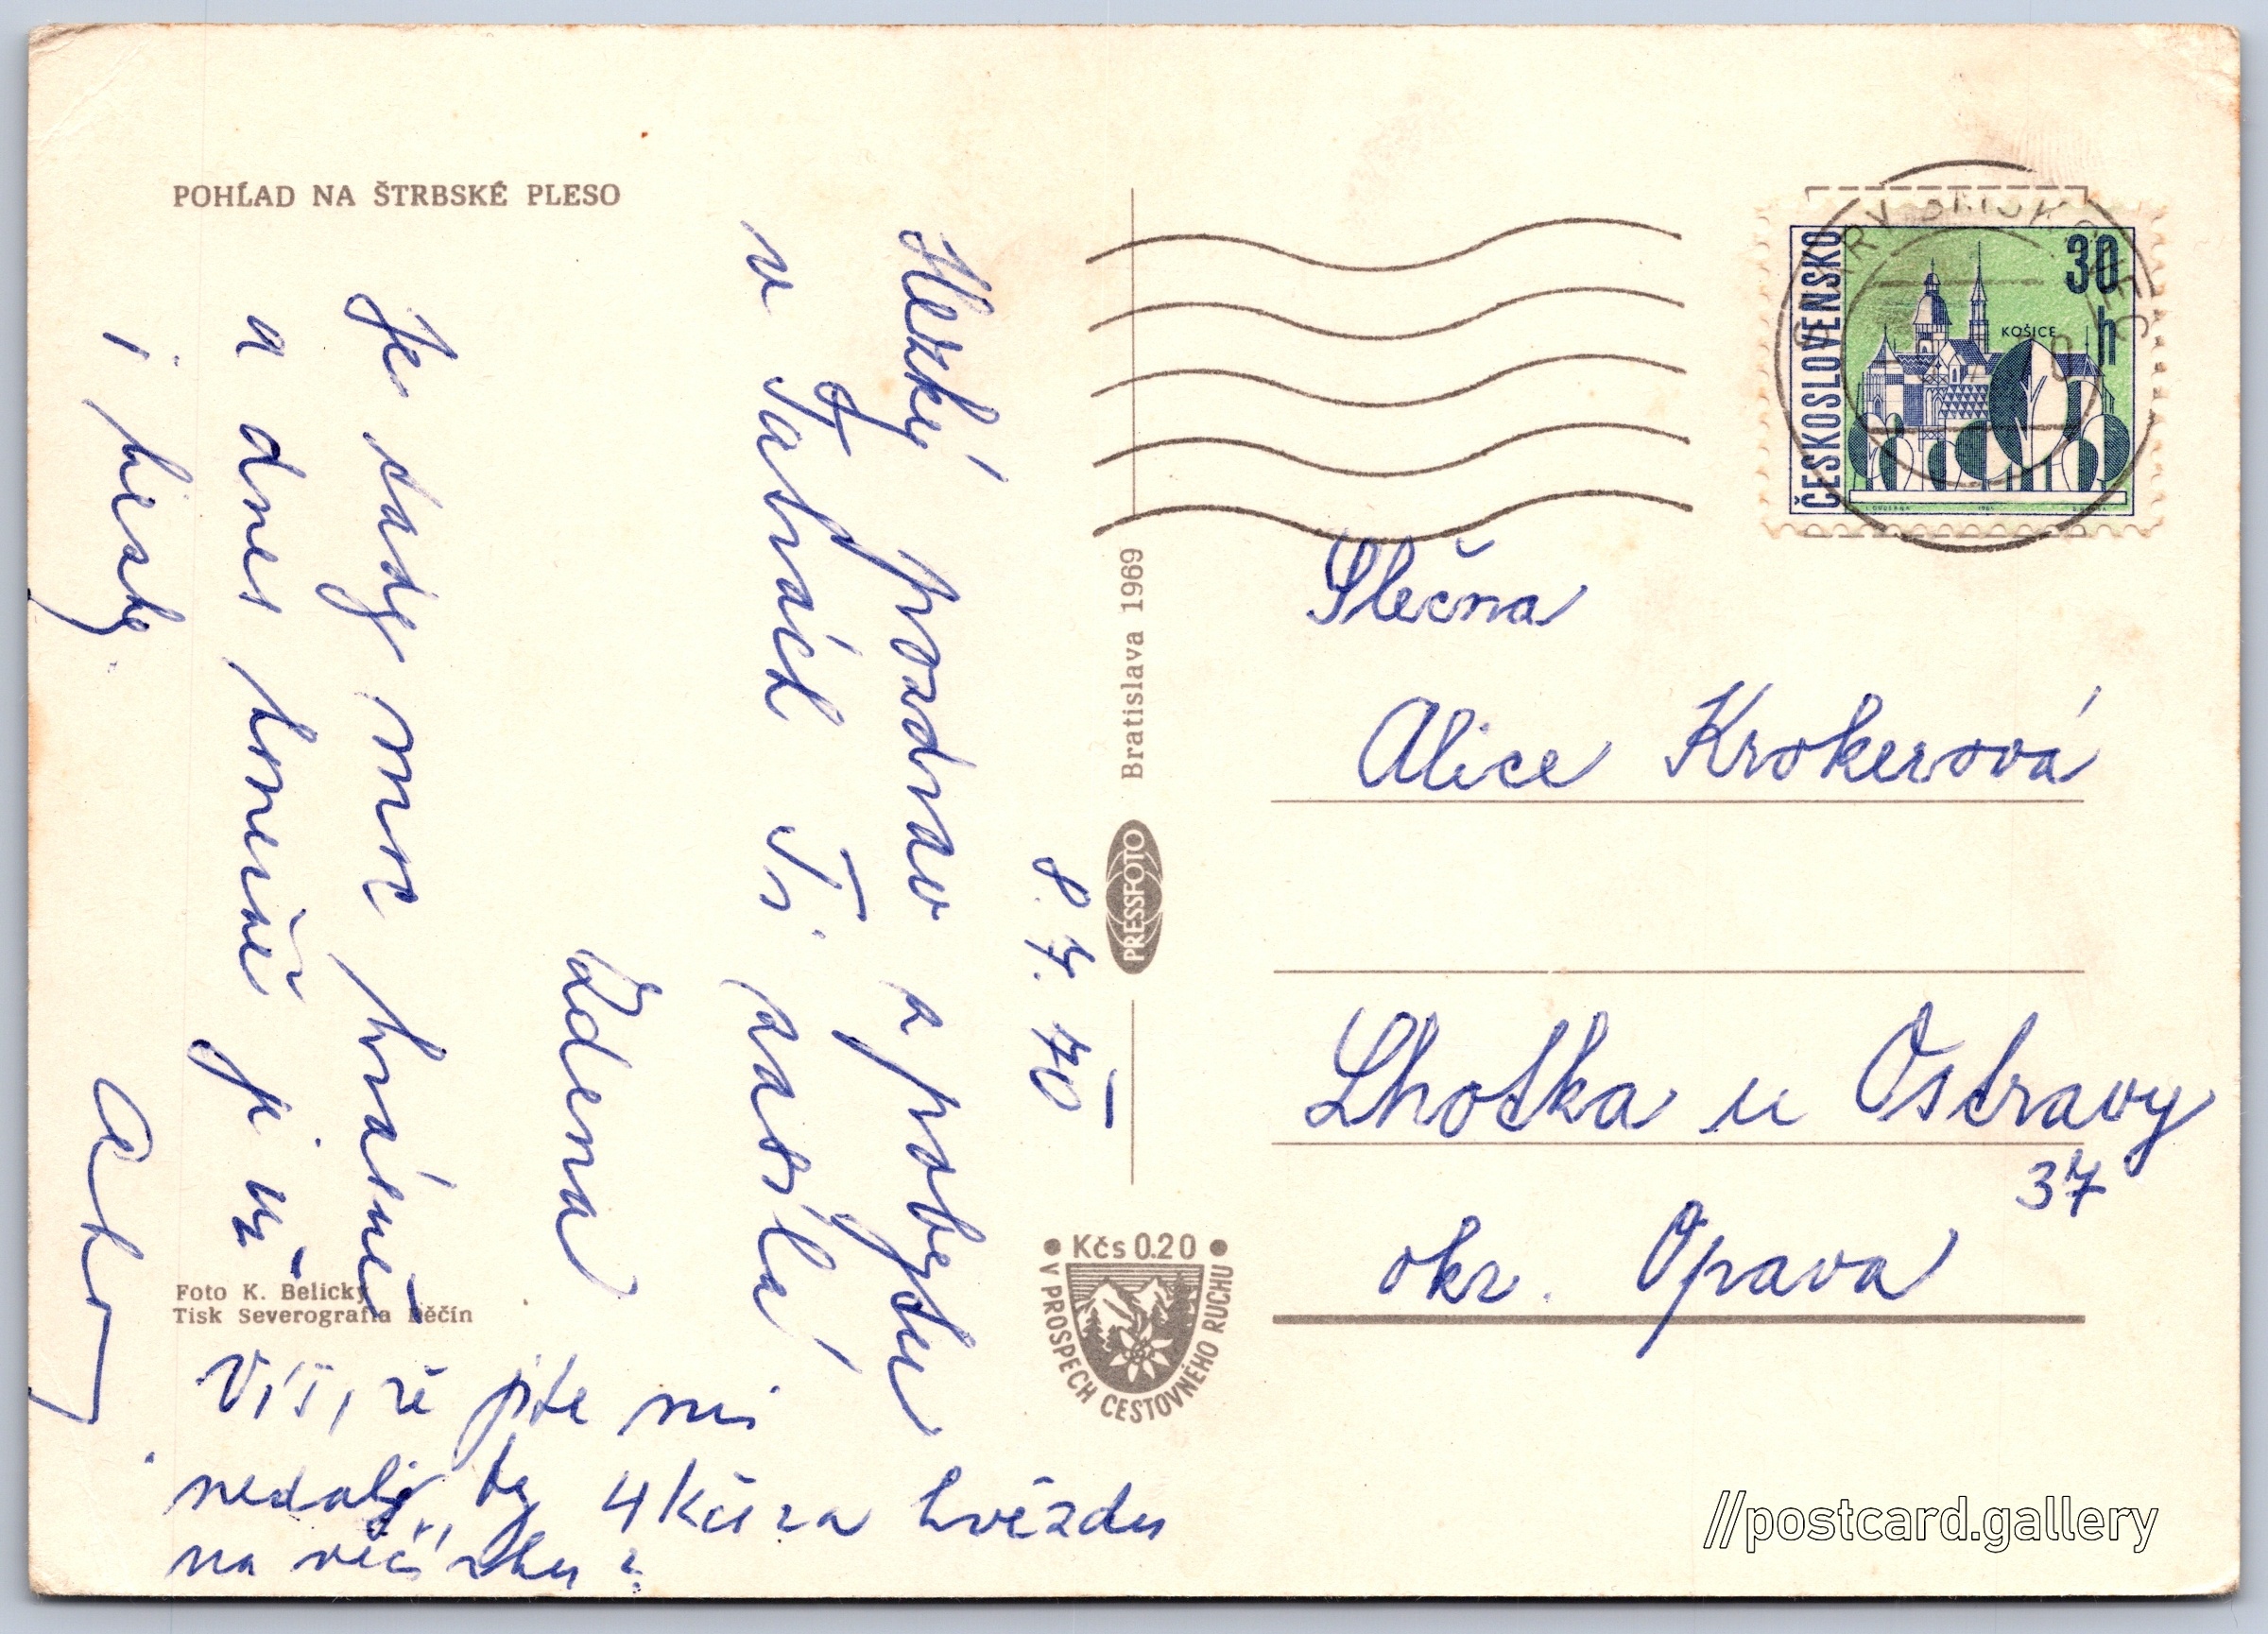 POHĽAD NA ŠTRBSKÉ PLESO
8. 7. 70
Hezký pozdrav z pobytu
v Tatrách Ti zasílá
Zdena
Je tady moc krásně
a dnes konečně je už
i hezky.
Foto K. Belický
Tisk Severografia Děčín
Víš, že jste mi
nedaly, ty 4 Kčs za hvězdu
na
PRESSFOTO Bratislava 1969
Kčs 0.20
V PROSPECH CESTOVNÉHO RUCHU
ČESKOSLOVENSKO
30 h
KOŠICE
STARÝ SMOKOVEC
Slečna
Alice Krokerová
Lhotka u Ostravy
37
okr. Opava
//postcard.gallery